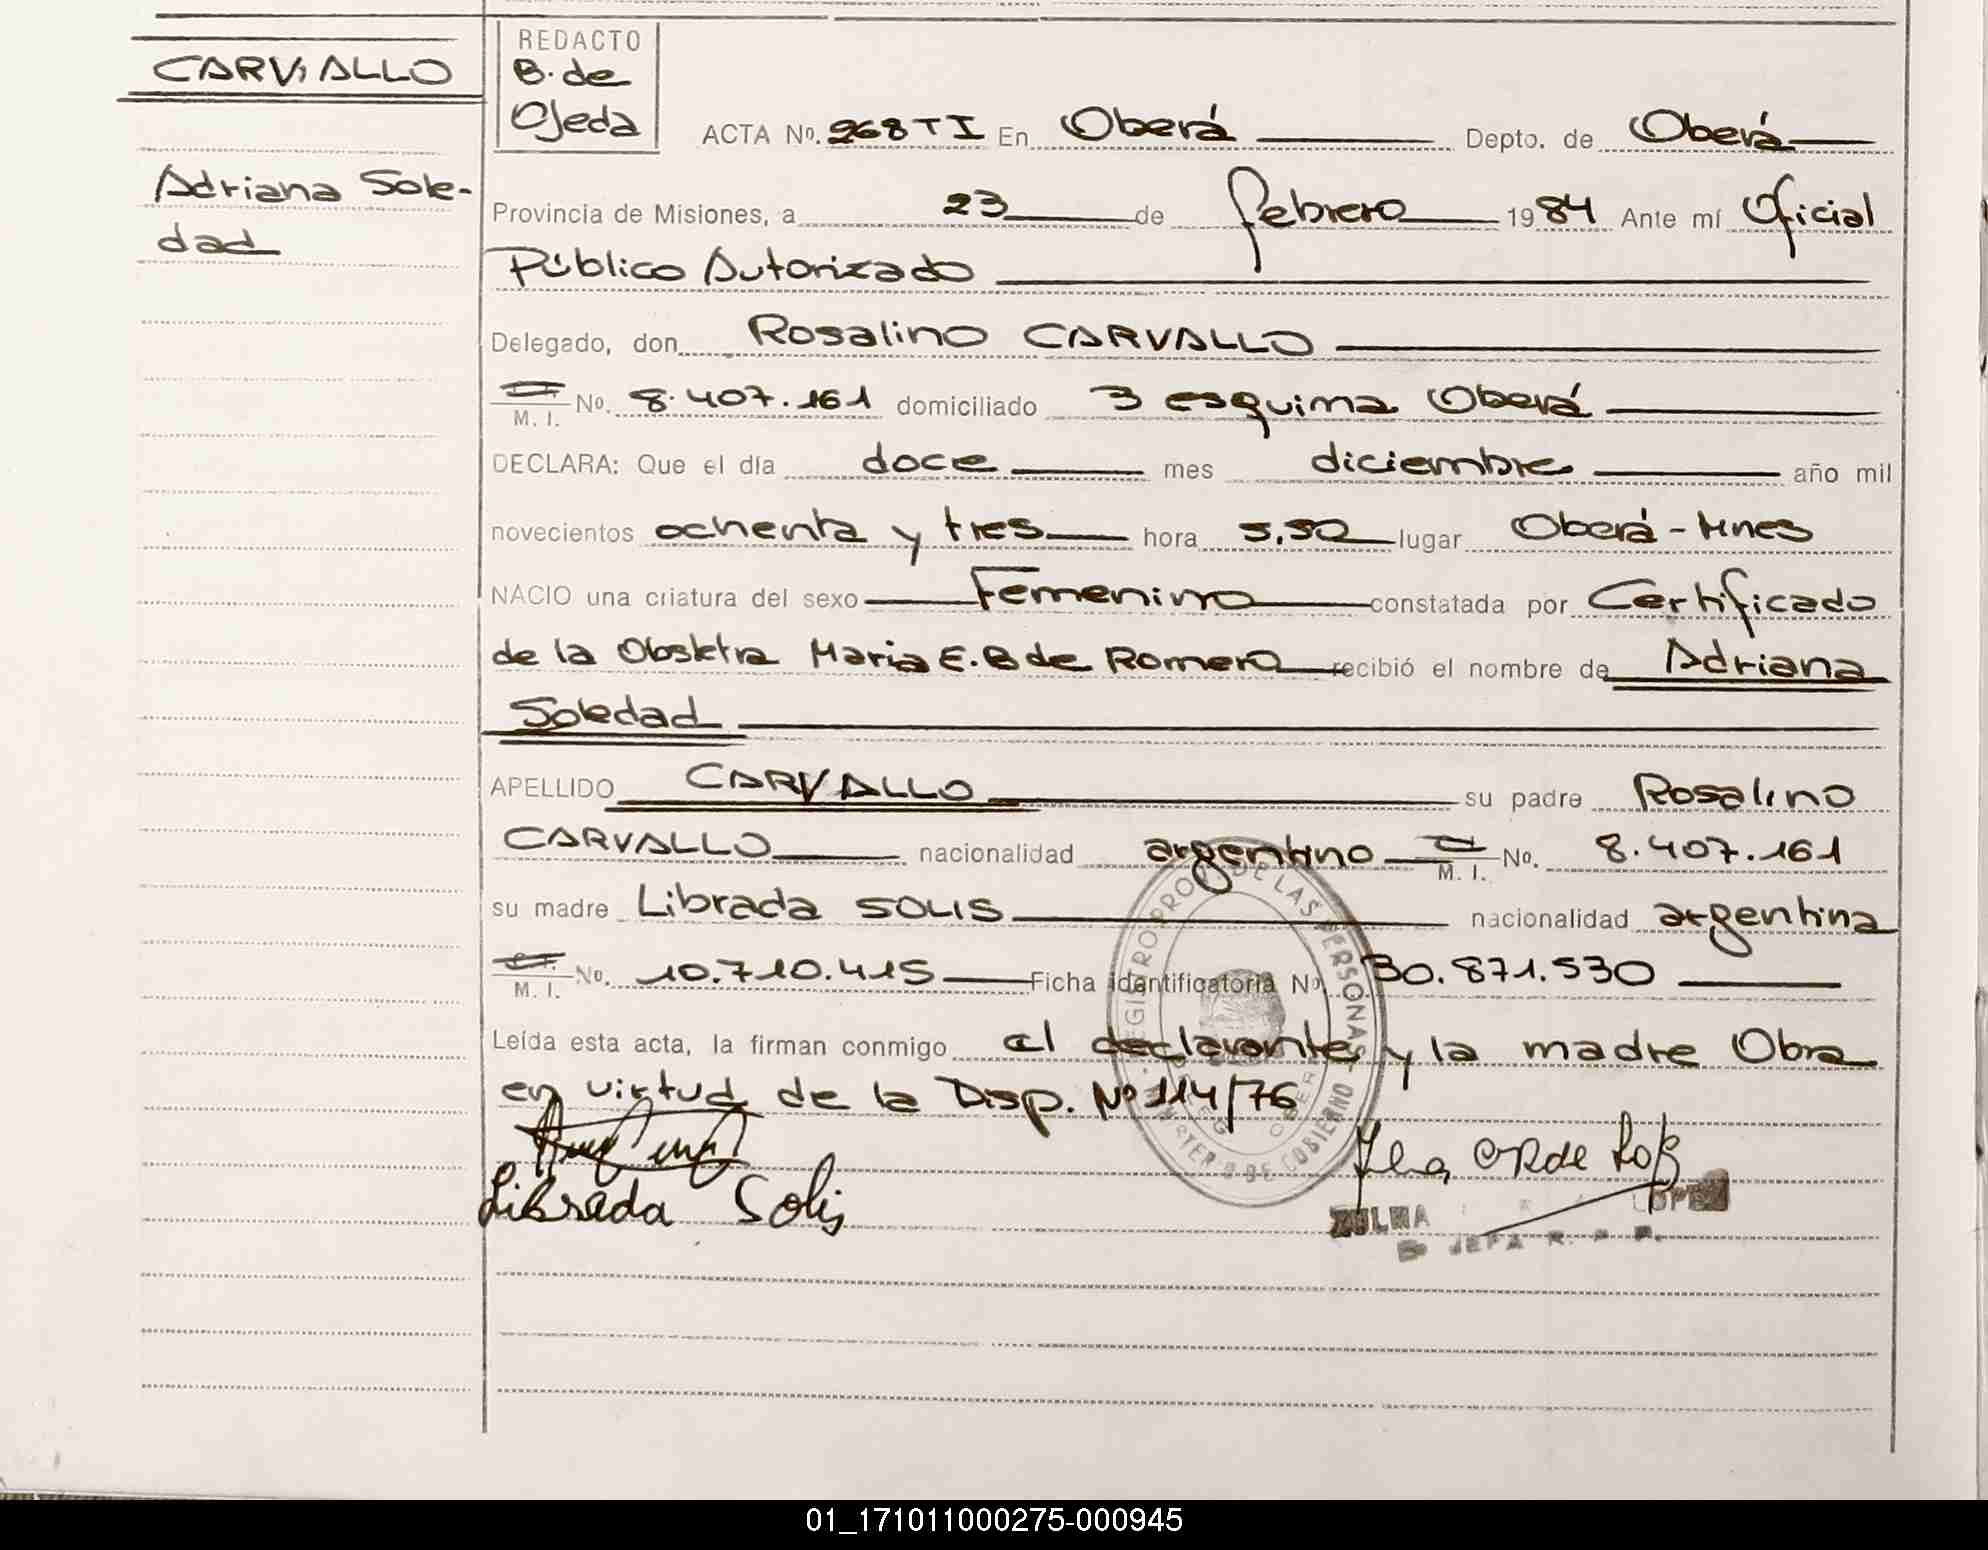 CARVALLO
Adriana Sole-
dad
REDACTO
B. de
Ojeda
ACTA No. 268 T I En Oberá Depto. de Oberá
Provincia de Misiones, a 23 de febrero 1984 Ante mí Oficial
Público Autorizado
Delegado, don Rosalino CARVALLO
M. I. No. 8.407.161 domiciliado 3 esquima Oberá
DECLARA: Que el día doce mes diciembre año mil
novecientos ochenta y tres hora 5.50 lugar Oberá - Mnes
NACIO una criatura del sexo Femenino constatada por Certificado
de la Obstetra Maria E. B de Romero recibió el nombre de Adriana
Soledad
APELLIDO CARVALLO su padre Rosalino
CARVALLO nacionalidad argentino M. I. No. 8.407.161
su madre Librada SOLIS nacionalidad argentina
M. I. No. 10.710.415 Ficha identificatoria No. 30.871.530
Leída esta acta, la firman conmigo el declarante y la madre Obra
en virtud de la Disp. Nº 114/76
Librada Solis
REGISTRO PROV. DE LAS PERSONAS
MINISTERIO DE GOBIERNO
ZULMA LOPEZ
JEFA R. P. P.
01_171011000275-000945